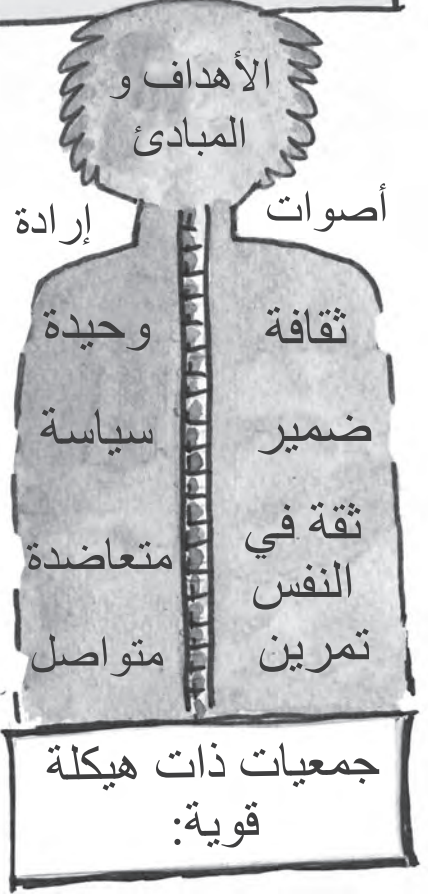 الأهداف و
المبادئ
أصوات إرادة
ثقافة وحيدة
ضمير سياسة
ثقة في
النفس متعاضدة
تمرين متواصل
جمعيات ذات هيكلة
قوية: